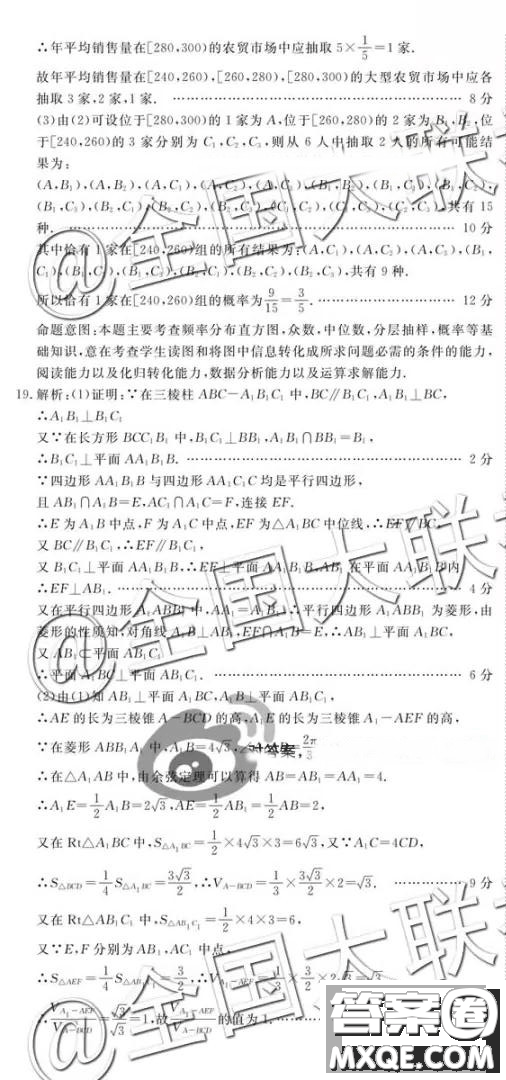 ∴年平均销售量在[280,300)的农贸市场中应抽取 5×1/5=1家.
故年平均销售量在[240,260),[260,280),[280,300)的大型农贸市场中应各
抽取3家,2家,1家. ………… 8分
(3)由(2)可设位于[280,300)的1家为A,位于[260,280)的2家为B₁,B₂,位
于[240,260)的3家分别为C₁,C₂,C₃,则从6人中抽取2人的所有可能结
果为:
(A,B₁),(A,B₂),(A,C₁),(A,C₂),(A,C₃),(B₁,B₂),(B₁,C₁),(B₁,C₂),
(B₁,C₃),(B₂,C₁),(B₂,C₂),(B₂,C₃),(C₁,C₂),(C₁,C₃),(C₂,C₃),共有15
种. ………… 10分
其中恰有1家在[240,260)组的所有结果为:(A,C₁),(A,C₂),(A,C₃),(B₁,
C₁),(B₁,C₂),(B₁,C₃),(B₂,C₁),(B₂,C₂),(B₂,C₃),共有9种.
所以恰有1家在[240,260)组的概率为9/15=3/5. ………… 12分
命题意图:本题主要考查频率分布直方图,众数,中位数,分层抽样,概率等基
础知识,意在考查学生读图和将图中信息转化成所求问题必需的条件的能力,
阅读能力以及化归转化能力,数据分析能力以及运算求解能力.
19.解析:(1)证明:∵在三棱柱ABC-A₁B₁C₁中,BC∥B₁C₁,A₁B₁⊥BC,
∴A₁B₁⊥B₁C₁
又∵在长方形BCC₁B₁中,B₁C₁⊥BB₁,A₁B₁∩BB₁=B₁,
∴B₁C₁⊥平面AA₁B₁B. ………… 2分
∵四边形AA₁B₁B与四边形AA₁C₁C均是平行四边形,
且AB₁∩A₁B=E,AC₁∩A₁C=F,连接EF.
∴E为A₁B中点,F为A₁C中点,EF为△A₁BC中位线,∴EF∥BC,
又BC∥B₁C₁,∴EF∥B₁C₁,
又B₁C₁⊥平面AA₁B₁B,∴EF⊥平面AA₁B₁B,AB₁在平面AA₁B₁B内
∴EF⊥AB₁. ………… 4分
又在平行四边形A₁ABB₁中,AA₁=A₁B₁,∴平行四边形A₁ABB₁为菱形,由
菱形的性质知:对角线A₁B⊥AB₁,EF∩A₁B=E,∴AB₁⊥平面A₁BC,
又AB₁⊂平面AB₁C₁
∴平面A₁BC⊥平面AB₁C₁. ………… 6分
(2)由(1)知AB₁⊥平面A₁BC,A₁B⊥平面AB₁C₁,
∴AE的长为三棱锥A-BCD的高,A₁E的长为三棱锥A₁-AEF的高,
∵在菱形ABB₁A₁中,A₁B=4√3, 2π/3
∴在△A₁AB中,由余弦定理可以算得AB=AB₁=AA₁=4.
∴A₁E=1/2A₁B=2√3,AE=1/2AB₁=1/2AB=2,
又在Rt△A₁BC中,S△A₁BC=1/2×4√3×3=6√3,又∵A₁C=4CD,
∴S△BCD=1/4S△A₁BC=3√3/2,∴V_A-BCD=1/3×3√3/2×2=√3. ………… 9分
又在Rt△AB₁C₁中,S△AB₁C₁=1/2×4×3=6,
又∵E,F分别为AB₁,AC₁中点,
∴S△AEF=1/4S△AB₁C₁=3/2,∴V_A₁-AEF=1/3×3/2×2√3=√3
∴V_A₁-AEF/V_A-BCD=√3/√3=1,故V_A₁-AEF/V_A-BCD的值为1. …………
@全国大联
@全国大联
@全国大联
叶答案,
答案圈
MXQE.COM